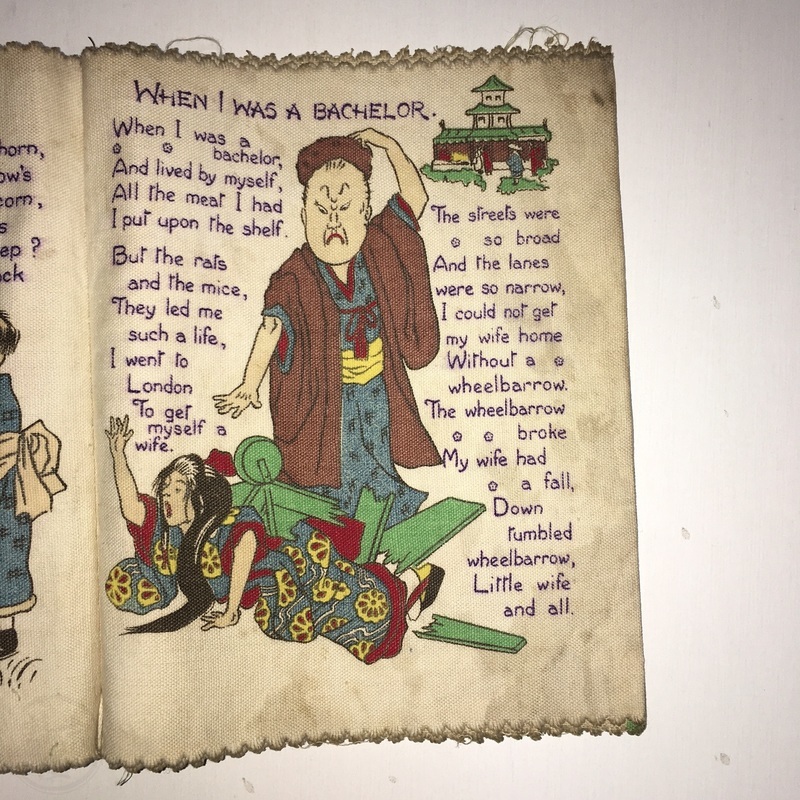 horn,
ow's
corn,
s
ep ?
ck
WHEN I WAS A BACHELOR.
When I was a
bachelor,
And lived by myself,
All the meat I had
I put upon the shelf.
But the rats
and the mice,
They led me
such a life,
I went to
London
To get
myself a
wife.
The streets were
so broad
And the lanes
were so narrow,
I could not get
my wife home
Without a
wheelbarrow.
The wheelbarrow
broke
My wife had
a fall,
Down
tumbled
wheelbarrow,
Little wife
and all.